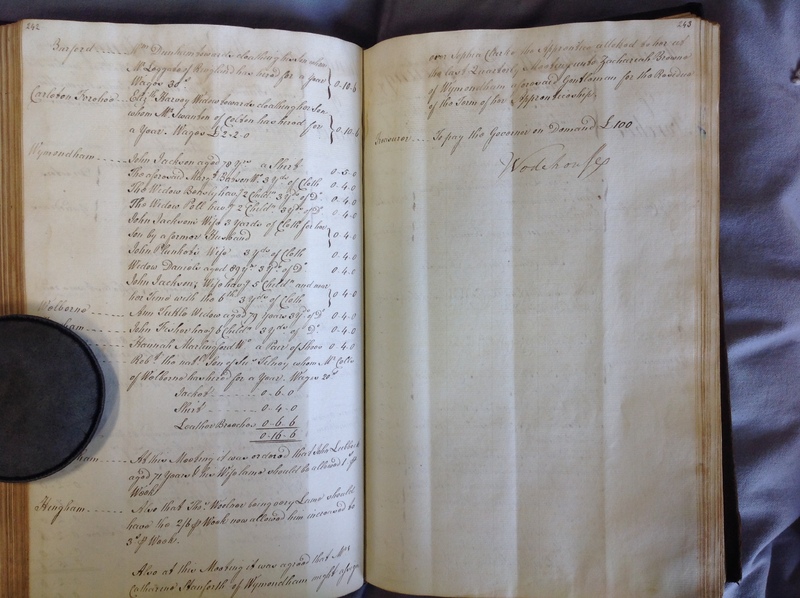 242
Barford ...... Mrs. Dunham towards cloathing her Son whom
Mr. Loggate of has hired for a Year
Wages 30s } 0-10-6
Carleton Forehoe ... Eliz:th Harvoy Widow towards cloathing her Son
whom Mr. Swanton of Coston has hired for
a Year. Wages £2-2-0 } 0.10.6
Wymondham ...... John Jackson aged 70 Yrs. a Shirt 0-5-0
The aforesaid Marg:t Wid. 3 Yds of Cloth 0.4.0
The Widow hav:g 2 Child:n 3 Yds of Do. 0.4.0
The Widow Poll hav:g 2 Child:n 3 Yds of Do. 0.4.0
John Jacksons Wife 3 Yards of Cloth for her
Son by a former Husband } 0.4.0
John Wife 3 Yds of Cloth 0.4.0
Widow Daniels aged 89 Yrs 3 Yds of Do. 0.4.0
John Jackson, Wife hav:g 5 Child:n and near
her Time with the 6th 3 Yds of Cloth } 0.4.0
Welborne Ann Tuttle Widow aged 79 Years 3 Yds of Do. 0.4.0
ham John Fisher hav:g 6 Child:n 3 Yds of Do. 0.4.0
Hannah Markingford Wid. a Pair of Shoes 0.4.0
Rob:t the nat:l Son of whom Mr.
of Welborne has hired for a Year. Wages 20s
Jacket ........ 0-6-0
Shirt ........ 0-4-0
Leather Breeches 0-6-6
0-16-6
ham ...... At this Meeting it was ordered that John
aged 71 Years & his Wife lame should be allowed 1s p
Week
Hingham ...... Also that Thos. Woolnor being very Lame should
have the 2/6 p Week now allowed him increased to
3s p Week.
Also at this Meeting it was agreed that Mrs
Catharine Stanforth of Wymondham might assign
243
over Sophia Clarke the Apprentice allotted to her at
the last Quarterly Meeting unto Zachariah Browne
of Wymondham aforesaid Gentleman for the Residue
of the Term of her Apprenticeship,
Treasurer ... To pay the Governor on Demand £100
Wodehouse